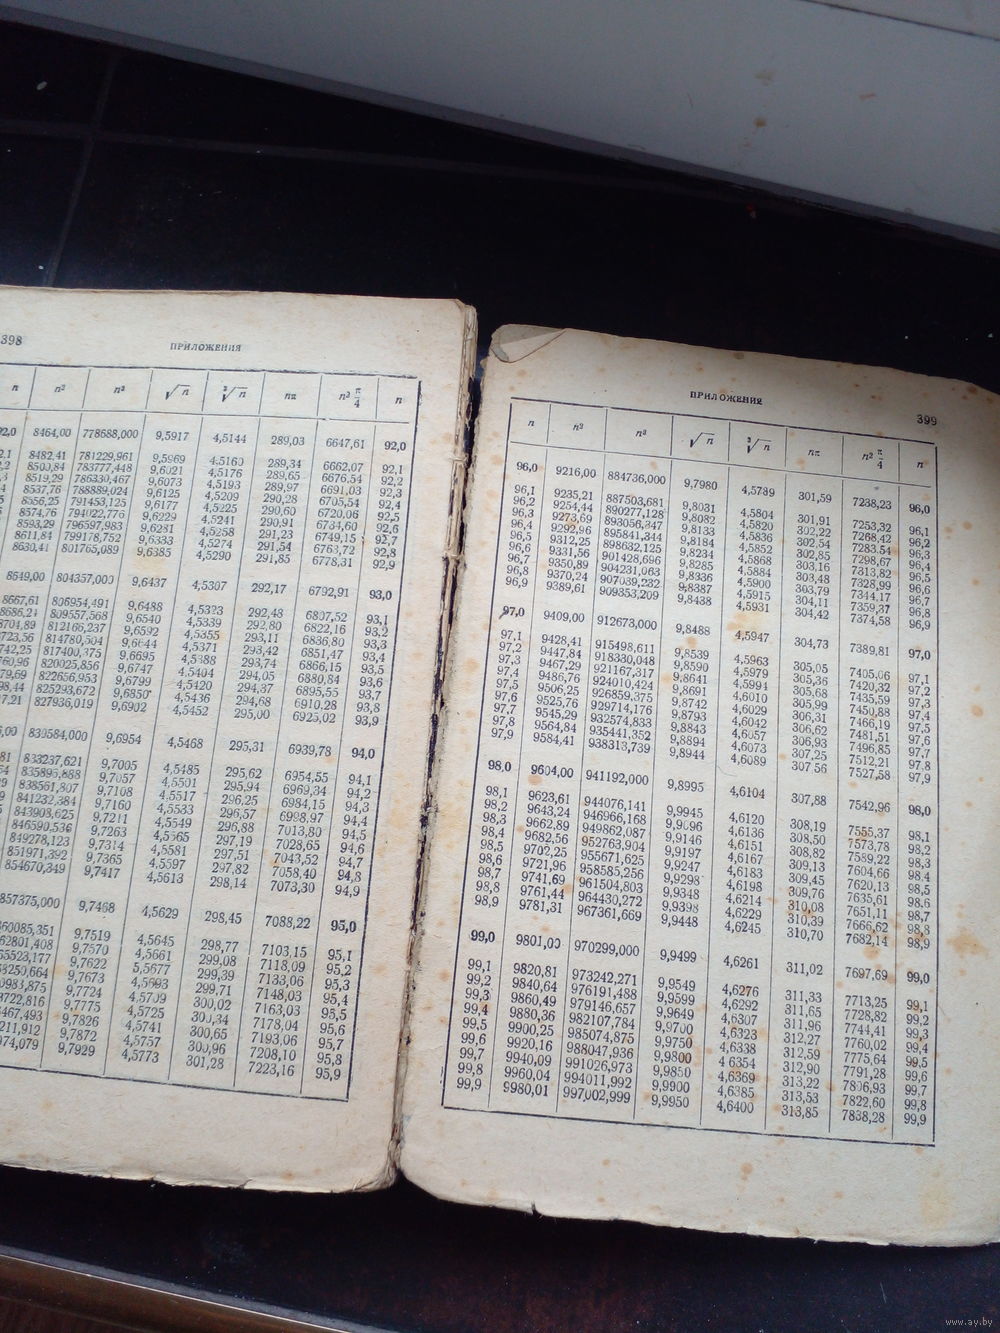 398
ПРИЛОЖЕНИЯ
n n² n³ √n ∛n nπ n² π/4 n
92,0 8464,00 778688,000 9,5917 4,5144 289,03 6647,61 92,0
8482,41 781229,961 9,5969 4,5160 289,34 6662,07 92,1
8500,84 783777,448 9,6021 4,5176 289,65 6676,54 92,2
8519,29 786330,467 9,6073 4,5193 289,97 6691,03 92,3
8537,76 788889,024 9,6125 4,5209 290,28 6705,54 92,4
8556,25 791453,125 9,6177 4,5225 290,60 6720,06 92,5
8574,76 794022,776 9,6229 4,5241 290,91 6734,60 92,6
8593,29 796597,983 9,6281 4,5258 291,23 6749,15 92,7
8611,84 799178,752 9,6333 4,5274 291,54 6763,72 92,8
8630,41 801765,089 9,6385 4,5290 291,85 6778,31 92,9
8649,00 804357,000 9,6437 4,5307 292,17 6792,91 93,0
8667,61 806954,491 9,6488 4,5323 292,48 6807,52 93,1
8686,24 809557,568 9,6540 4,5339 292,80 6822,16 93,2
8704,89 812166,237 9,6592 4,5355 293,11 6836,80 93,3
723,56 814780,504 9,6644 4,5371 293,42 6851,47 93,4
742,25 817400,375 9,6695 4,5388 293,74 6866,15 93,5
760,96 820025,856 9,6747 4,5404 294,05 6880,84 93,6
79,69 822656,953 9,6799 4,5420 294,37 6895,55 93,7
98,44 825293,672 9,6850 4,5436 294,68 6910,28 93,8
17,21 827936,019 9,6902 4,5452 295,00 6925,02 93,9
6,00 830584,000 9,6954 4,5468 295,31 6939,78 94,0
81 833237,621 9,7005 4,5485 295,62 6954,55 94,1
835896,888 9,7057 4,5501 295,94 6969,34 94,2
838561,807 9,7108 4,5517 296,25 6984,15 94,3
841232,384 9,7160 4,5533 296,57 6998,97 94,4
843908,625 9,7211 4,5549 296,88 7013,80 94,5
846590,536 9,7263 4,5565 297,19 7028,65 94,6
849278,123 9,7314 4,5581 297,51 7043,52 94,7
851971,392 9,7365 4,5597 297,82 7058,40 94,8
854670,349 9,7417 4,5613 298,14 7073,30 94,9
857375,000 9,7468 4,5629 298,45 7088,22 95,0
860085,351 9,7519 4,5645 298,77 7103,15 95,1
62801,408 9,7570 4,5661 299,08 7118,09 95,2
65523,177 9,7622 5,5677 299,39 7133,06 95,3
68250,664 9,7673 4,5693 299,71 7148,03 95,4
0983,875 9,7724 4,5709 300,02 7163,03 95,5
3722,816 9,7775 4,5725 300,34 7178,04 95,6
467,493 9,7826 4,5741 300,65 7193,06 95,7
211,912 9,7872 4,5757 300,96 7208,10 95,8
974,079 9,7929 4,5773 301,28 7223,16 95,9
ПРИЛОЖЕНИЯ
399
n n² n³ √n ∛n nπ n² π/4 n
96,0 9216,00 884736,000 9,7980 4,5789 301,59 7238,23 96,0
96,1 9235,21 887503,681 9,8031 4,5804 301,91 7253,32 96,1
96,2 9254,44 890277,128 9,8082 4,5820 302,22 7268,42 96,2
96,3 9273,69 893056,347 9,8133 4,5836 302,54 7283,54 96,3
96,4 9292,96 895841,344 9,8184 4,5852 302,85 7298,67 96,4
96,5 9312,25 898632,125 9,8234 4,5868 303,16 7313,82 96,5
96,6 9331,56 901428,696 9,8285 4,5884 303,48 7328,99 96,6
96,7 9350,89 904231,063 9,8336 4,5900 303,79 7344,17 96,7
96,8 9370,24 907039,232 9,8387 4,5915 304,11 7359,37 96,8
96,9 9389,61 909353,209 9,8438 4,5931 304,42 7374,58 96,9
97,0 9409,00 912673,000 9,8488 4,5947 304,73 7389,81 97,0
97,1 9428,41 915498,611 9,8539 4,5963 305,05 7405,06 97,1
97,2 9447,84 918330,048 9,8590 4,5979 305,36 7420,32 97,2
97,3 9467,29 921167,317 9,8641 4,5994 305,68 7435,59 97,3
97,4 9486,76 924010,424 9,8691 4,6010 305,99 7450,88 97,4
97,5 9506,25 926859,375 9,8742 4,6029 306,31 7466,19 97,5
97,6 9525,76 929714,176 9,8793 4,6042 306,62 7481,51 97,6
97,7 9545,29 932574,833 9,8843 4,6057 306,93 7496,85 97,7
97,8 9564,84 935441,352 9,8894 4,6073 307,25 7512,21 97,8
97,9 9584,41 938313,739 9,8944 4,6089 307,56 7527,58 97,9
98,0 9604,00 941192,000 9,8995 4,6104 307,88 7542,96 98,0
98,1 9623,61 944076,141 9,9945 4,6120 308,19 7555,37 98,1
98,2 9643,24 946966,168 9,9096 4,6136 308,50 7573,78 98,2
98,3 9662,89 949862,087 9,9146 4,6151 308,82 7589,22 98,3
98,4 9682,56 952763,904 9,9197 4,6167 309,13 7604,66 98,4
98,5 9702,25 955671,625 9,9247 4,6183 309,45 7620,13 98,5
98,6 9721,96 958585,256 9,9298 4,6198 309,76 7635,61 98,6
98,7 9741,69 961504,803 9,9348 4,6214 310,08 7651,11 98,7
98,8 9761,44 964430,272 9,9398 4,6229 310,39 7666,62 98,8
98,9 9781,31 967361,669 9,9448 4,6245 310,70 7682,14 98,9
99,0 9801,00 970299,000 9,9499 4,6261 311,02 7697,69 99,0
99,1 9820,81 973242,271 9,9549 4,6276 311,33 7713,25 99,1
99,2 9840,64 976191,488 9,9599 4,6292 311,65 7728,82 99,2
99,3 9860,49 979146,657 9,9649 4,6307 311,96 7744,41 99,3
99,4 9880,36 982107,784 9,9700 4,6323 312,27 7760,02 99,4
99,5 9900,25 985074,875 9,9750 4,6338 312,59 7775,64 99,5
99,6 9920,16 988047,936 9,9800 4,6354 312,90 7791,28 99,6
99,7 9940,09 991026,973 9,9850 4,6369 313,22 7806,93 99,7
99,8 9960,04 994011,992 9,9900 4,6385 313,53 7822,60 99,8
99,9 9980,01 997,002,999 9,9950 4,6400 313,85 7838,28 99,9
www.ay.by